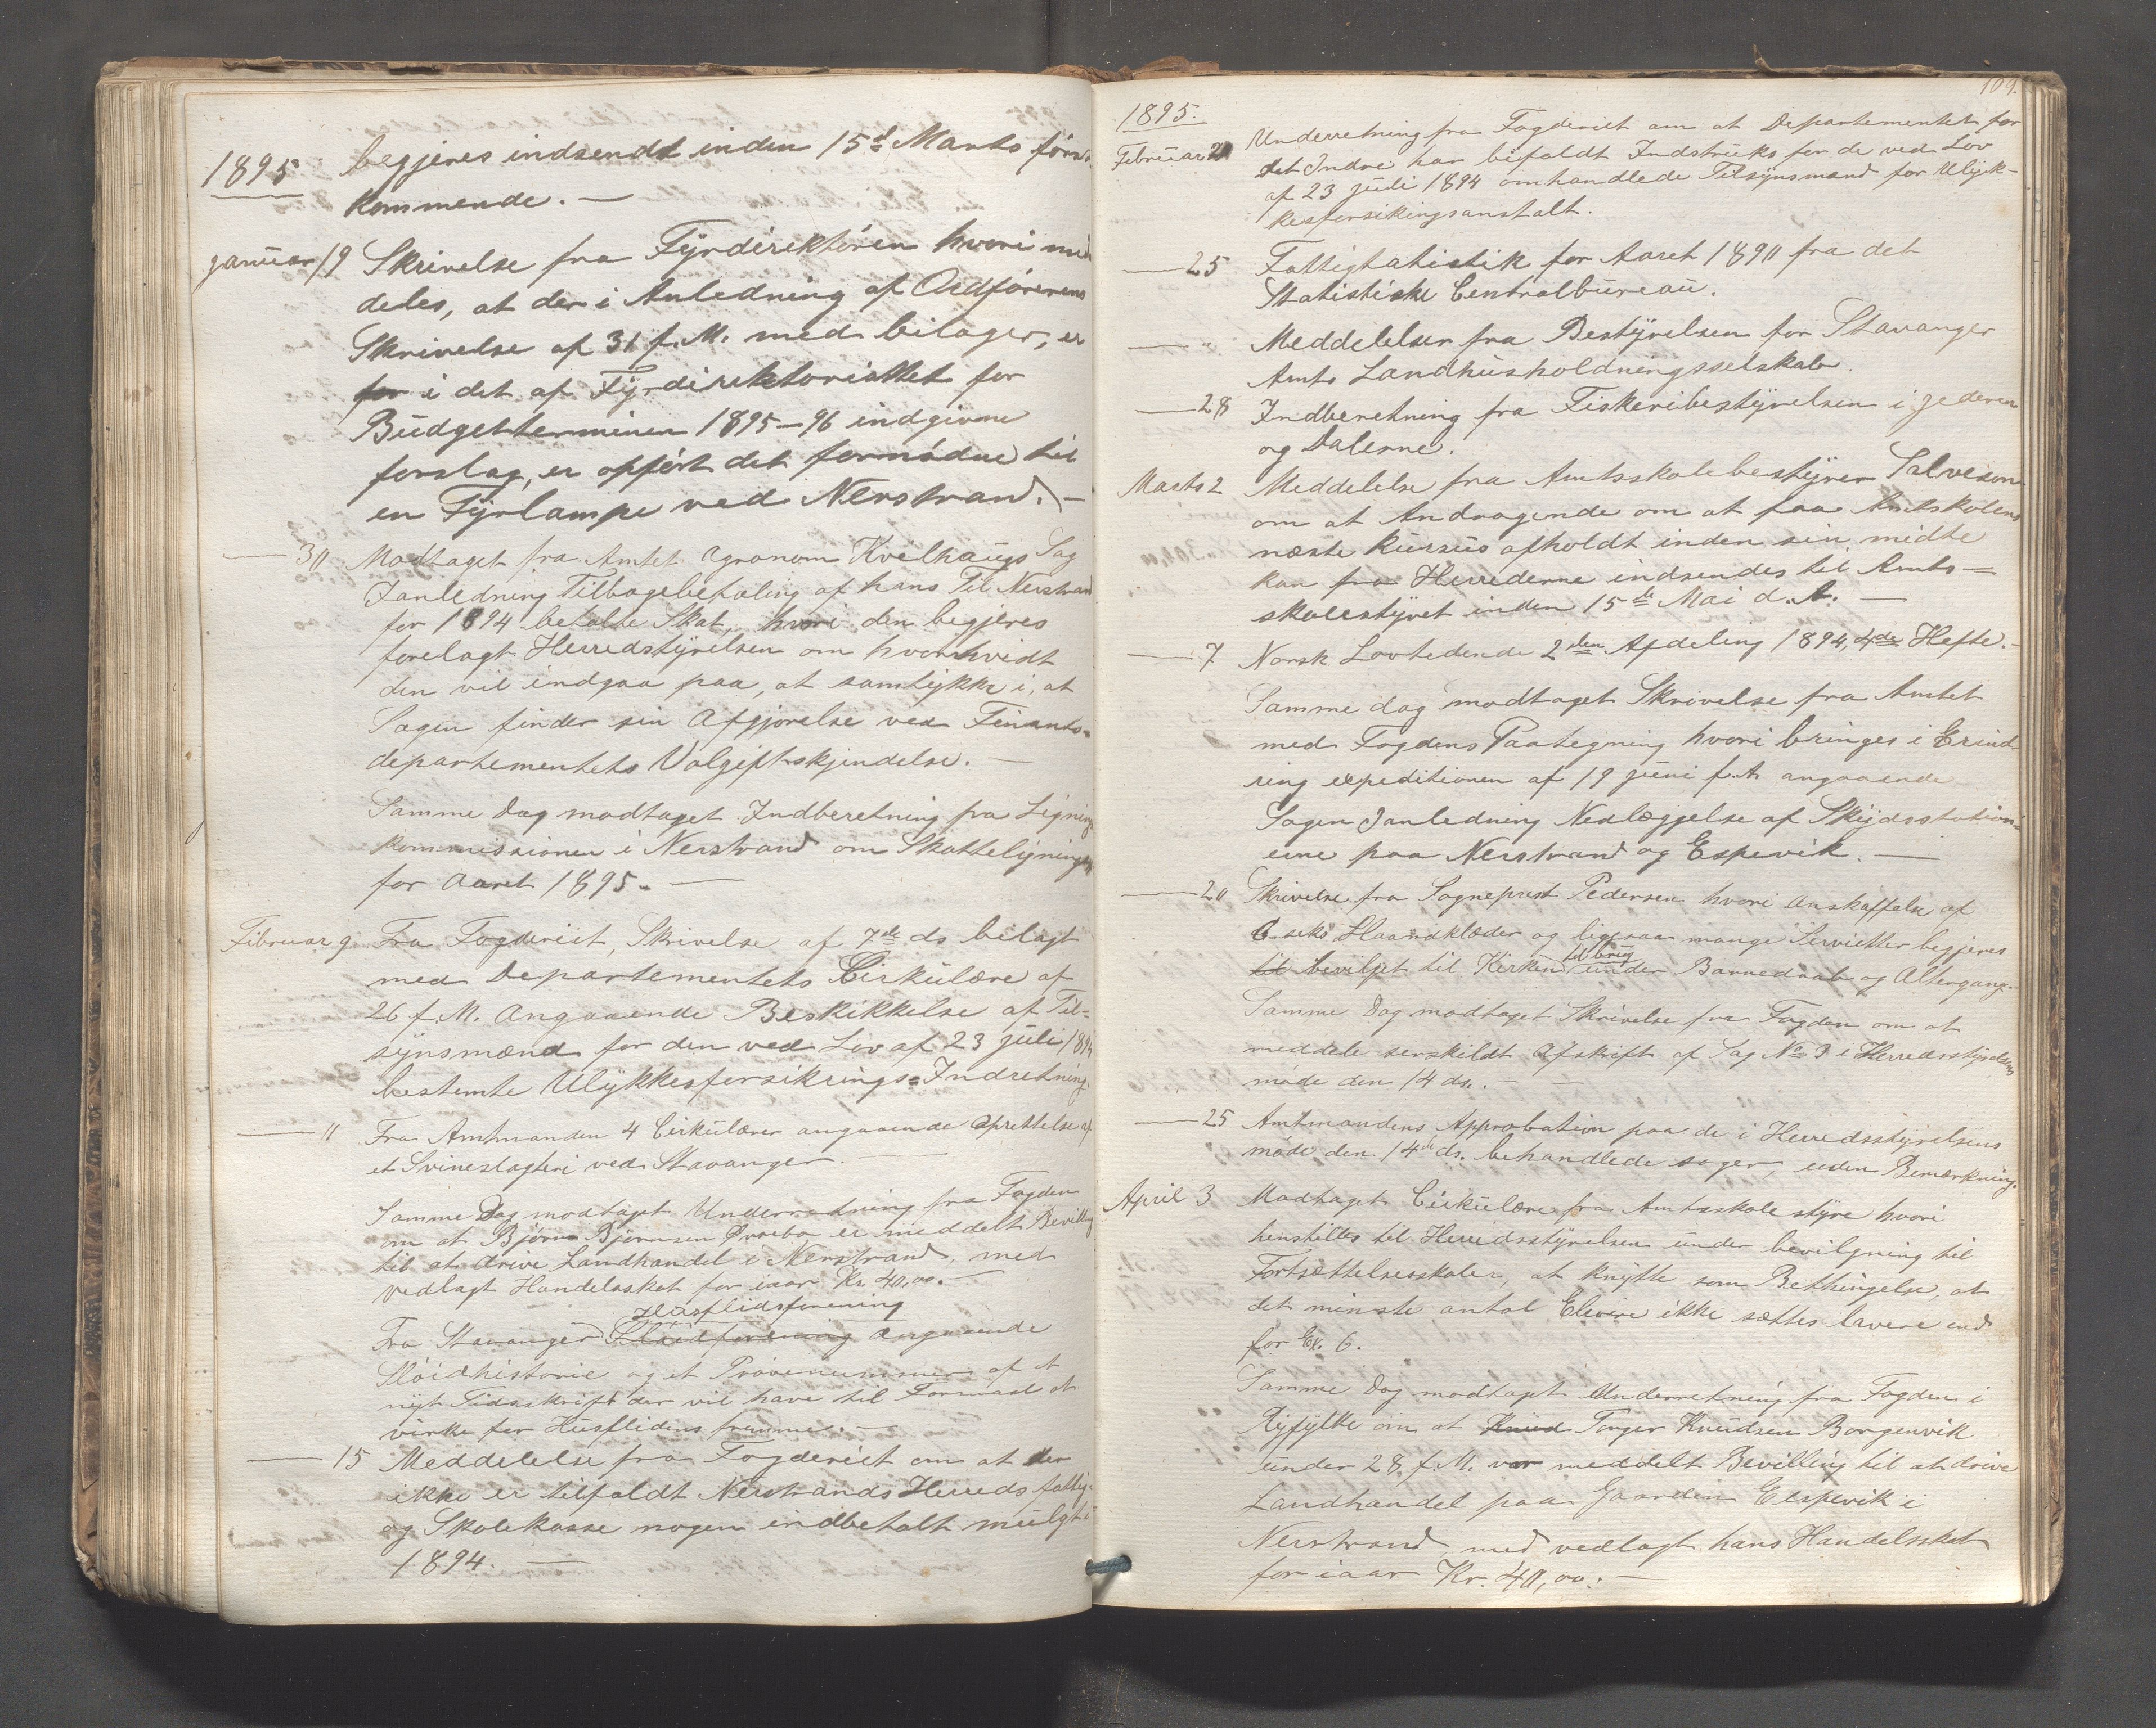 1895 begjeres indsendt inden 15d Marts først
kommende. —
Januar 19 Skrivelse fra Fyrdirektören hvori med
deles, at der i Anledning af Ordförerens
Skrivelse af 31 f. M. med bilager, er
for i det af Fyrdirektoriattet for
Budgetterminen 1895–96 indgivne
forslag, er opfört det fornödne til
en Fyrlampe ved Nerstrand. —
— 30 Modtaget fra Amtet Agronom Kvelhaugs Sag
Janledning Tilbagebetaling af hans Til Nerstrand
for 1894 betalte Skat, hvori den begjeres
forelagt Herredstyrelsen om hvorvidt
den vil indgaa paa, at samtykke i, at
Sagen finder sin Afgjorelse ved Finants-
departementets Volgiftskjendelse. —
Samme Dag modtaget Indberetning fra Lignings
kommissionen i Nerstrand om Skatteligningen
for Aaret 1895. —
Februar 9 Fra Fogderiet, Skrivelse af 7de ds bilagt
med Departementets Cirkulære af
26 f. M. Angaaende Beskikkelse af Til-
synsmænd for den ved Lov af 23 Juli 1894
bestemte Ulykkesforsikrings-Indretning.
— " Fra Amtmanden 4 Cirkulærer angaaende Oprettelse af
et Svineslagteri ved Stavanger. —
Samme Dag modtaget Underretning fra Fogden
om at Björn Björnsen er meddelt Bevilling
til at drive Landhandel i Nerstrand, med
vedlagt Handelsskat for iaar Kr. 40,00. —
Husflidsforening
Fra Stavanger Slöidforening angaaende
Slöidhistorie og et Prövenummer af et
nyt Tidsskrift der vil have til Formaal at
virke for Husflidens fremme. —
— 15 Meddelelse fra Fogderiet om at der
ikke er tilfaldt Nerstrands Herreds fattig-
og Skolekasse nogen indbetalt mulgt i
1894. —
109.
1895.
Februar 21 Underretning fra Fogderiet om at Departementet for
det Indre har bifaldt Indstruks for de ved Lov
af 23 Juli 1894 omhandlede Tilsynsmænd for Ulyk-
kesforsikingsanstalt.
— 25 Fattigtatistik for Aaret 1890 fra det
Statistiske Centralbureau.
— " Meddelelser fra Bestyrelsen for Stavanger
Amts Landhusholdningsselskab.
— 28 Indberetning fra Fiskeribestyrelsen i Jederen
og Dalerne.
Marts 2 Meddelelse fra Amtsskolebestyrer Salveson
om at Andragende om at faa Amtskolens
næste Kursus afholdt inden sin midte
kan fra Herrederne indsendes til Amts-
skolestyret inden 15de Mai d. A. —
— 7 Norsk Lovtidende 2den Afdeling 1894, 4de Hefte. —
Samme dag modtaget Skrivelse fra Amtet
med Fogdens Paategning hvori bringes i Erind-
ring expeditionen af 19 Juni f. A. angaaende
Sagen Janledning Nedlæggelse af Skydsstation-
erne paa Nerstrand og Espevik. —
— 20 Skrivelse fra Sogneprest Pedersen hvori Anskaffelse af
6 seks Haandklæder og ligesaa mange Servietter begjeres
til brug
til bevilget til Kirken under Barnedaab og Altergang. —
Samme Dag modtaget Skrivelse fra Fogden om at
meddele serskildt Afskrift af Sag No 3 i Herredsstyrelsens
möde den 14 ds. —
— 25 Amtmandens Approbation paa de i Herredsstyrelsens
möde den 14de ds. behandlede sager, uden Bemærkning.
April 3 Modtaget Cirkulære fra Amtsskolestyre hvori
henstilles til Herredsstyrelsen under bevilgning til
Fortsættelsesskoler, at knytte som Bettingelse, at
det minste antal Elever ikke sættes lavere end
for Ex. 6.
Samme Dag modtaget Underretning fra Fogden i
Ryfylke om at Knud Torger Knudsen Borgenvik
under 28 f. M. var meddelt Bevilling til at drive
Landhandel paa Gaarden Espevik i
Nerstrand, med vedlagt hans Handelsskat
for iaar Kr. 40,00. —